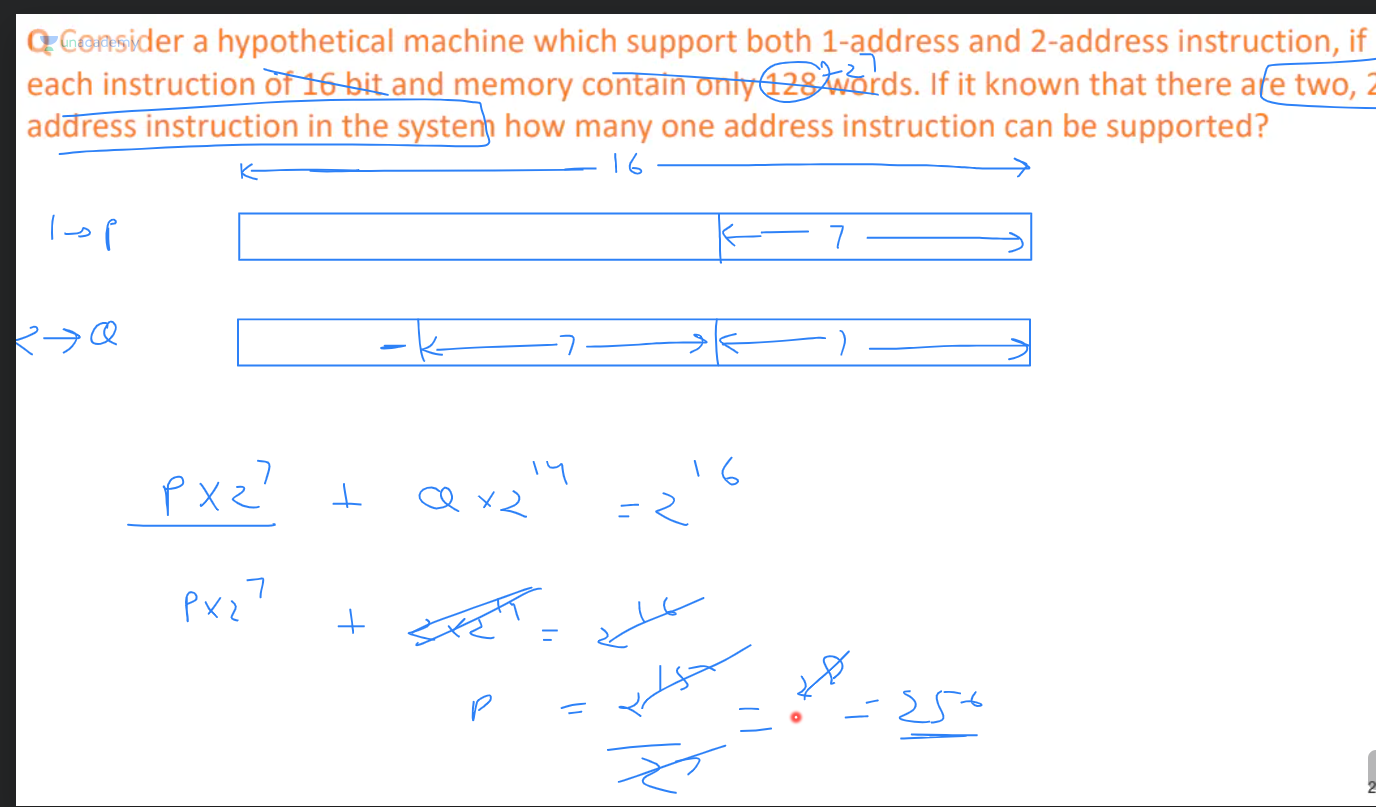 unacademy
Q Consider a hypothetical machine which support both 1-address and 2-address instruction, if
each instruction of 16 bit and memory contain only 128 words. If it known that there are two, 2
address instruction in the system how many one address instruction can be supported?
7 → 2^7
16
1 → P
7
2 → Q
7 7
P × 2^7 + Q × 2^14 = 2^16
P × 2^7 + 2 × 2^14 = 2^16
P = 2^15 / 2^7 = 2^8 = 256
2